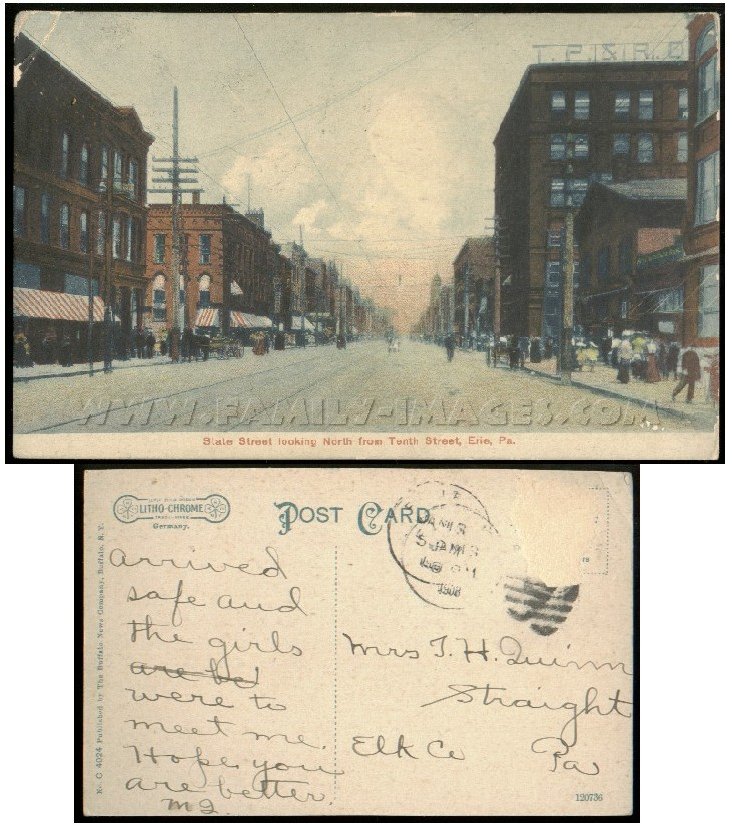 T. P. & R. D
WWW.FAMILY-IMAGES.COM
State Street looking North from Tenth Street, Erie, Pa.
LITHO-CHROME
TRADE MARK
Germany.
POST CARD
1908
No. C 4024 Published by The Buffalo News Company, Buffalo, N. Y.
arrived
safe and
the girls
are be
were to
meet me.
Hope you
are better.
Mrs T. H. Quinn
Straight
Elk Co Pa
120736